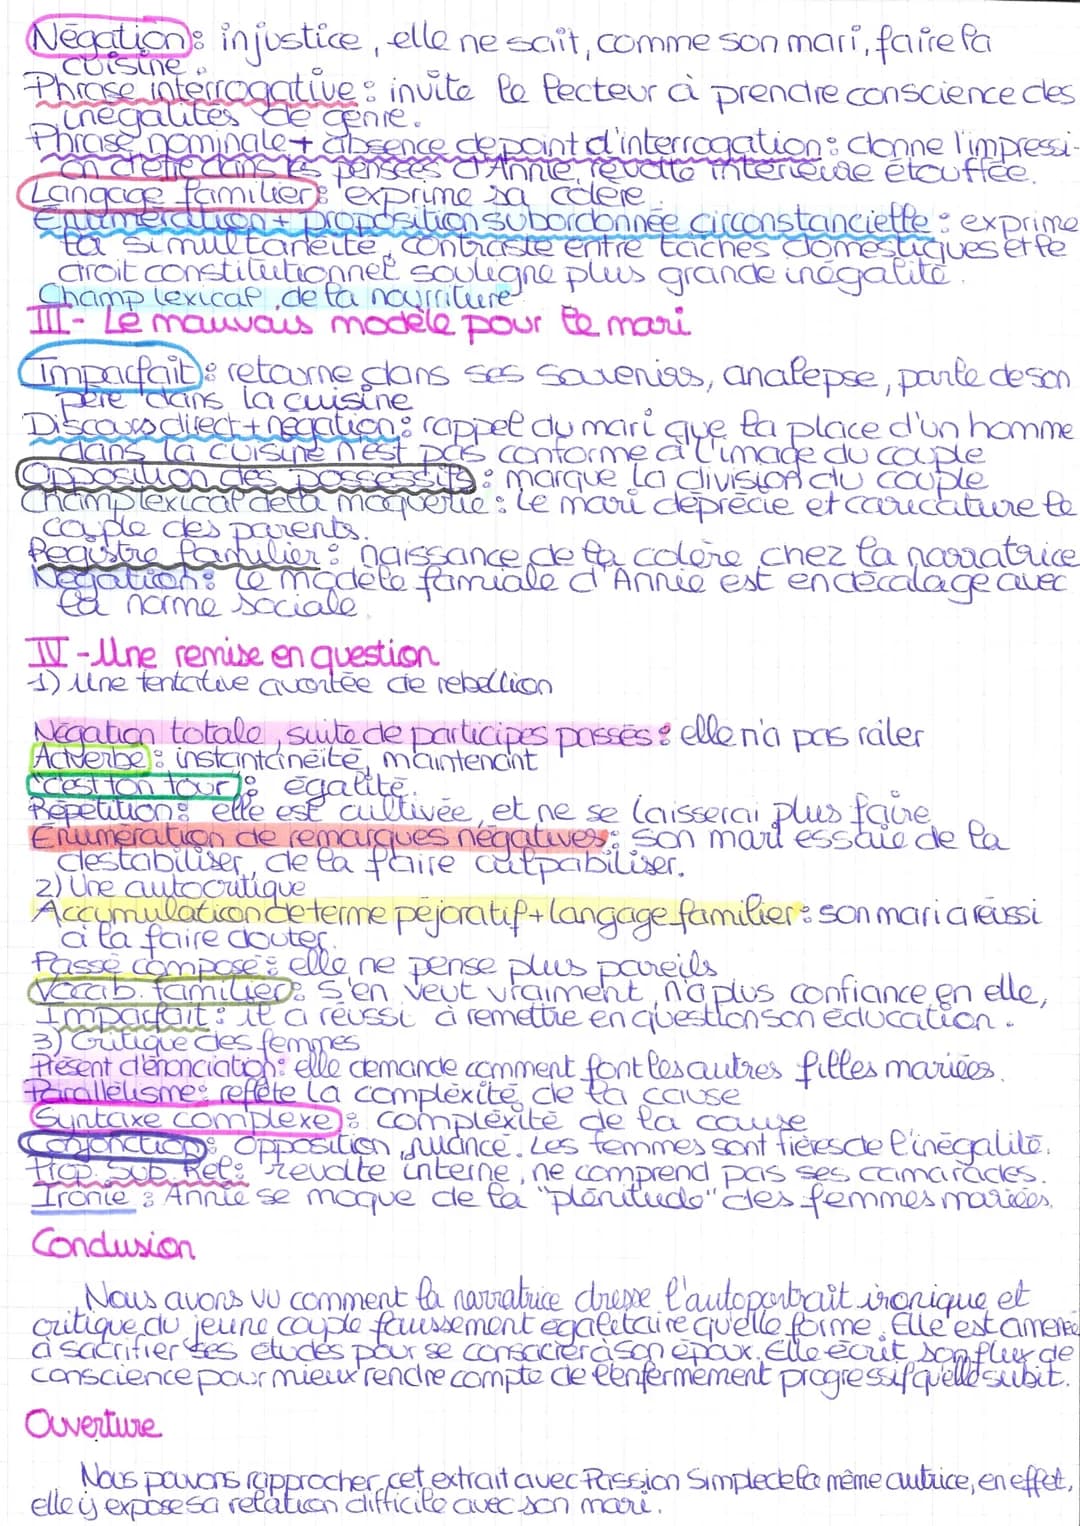 Négation : injustice, elle ne sait, comme son mari, faire la
cuisine.
Phrase interrogative : invite le lecteur à prendre conscience des
inégalités de genre.
Phrase nominale + absence de point d'interrogation : donne l'impressi-
on d'être dans les pensées d'Annie, révolte intérieure étouffée.
Langage familier : exprime sa colère.
Enumération + proposition subordonnée circonstancielle : exprime
la simultanéité, contraste entre tâches domestiques et le
droit constitutionnel souligne plus grande inégalité.
Champ lexical de la nourriture
III- Le mauvais modèle pour le mari
Imparfait : retourne dans ses souvenirs, analepse, parle de son
père dans la cuisine
Discours direct + négation : rappel du mari que la place d'un homme
dans la cuisine n'est pas conforme à l'image du couple
Opposition des possessifs : marque la division du couple
Champ lexical de la moquerie : le mari déprécie et caricature le
couple des parents.
Registre familier : naissance de la colère chez la narratrice
Négation : le modèle famiale d'Annie est en décalage avec
la norme sociale.
IV - Une remise en question
1) Une tentative avortée de rebellion
Négation totale, suite de participes passés : elle n'a pas râler
Adverbe : instantanéité, maintenant
"c'est ton tour" : égalité.
Répétition : elle est cultivée, et ne se laisserai plus faire
Enumération de remarques négatives : son mari essaie de la
destabiliser, de la faire culpabiliser.
2) Une autocritique
Accumulation de terme péjoratif + langage familier : son mari a réussi
à la faire douter.
Passé composé : elle ne pense plus pareils
Vocab. familier : s'en veut vraiment, n'a plus confiance en elle,
Imparfait : il a réussi à remettre en question son éducation.
3) Critique des femmes
Présent d'énonciation : elle demande comment font les autres filles mariées.
Parallélisme : reflète la complexité de la cause
Syntaxe complexe : complexité de la cause
Conjonction : Opposition, nuance. Les femmes sont fières de l'inégalité.
Prop. Sub. Rel : révolte interne, ne comprend pas ses camarades.
Ironie : Annie se moque de la "plénitude" des femmes mariées.
Conclusion
Nous avons vu comment la narratrice dresse l'autoportrait ironique et
critique du jeune couple faussement égalitaire qu'elle forme. Elle est amenée
à sacrifier ses études pour se consacrer à son époux. Elle écrit son flux de
conscience pour mieux rendre compte de l'enfermement progressif qu'elle subit.
Ouverture
Nous pouvons rapprocher cet extrait avec Passion Simple de la même autrice, en effet,
elle y expose sa relation difficile avec son mari.